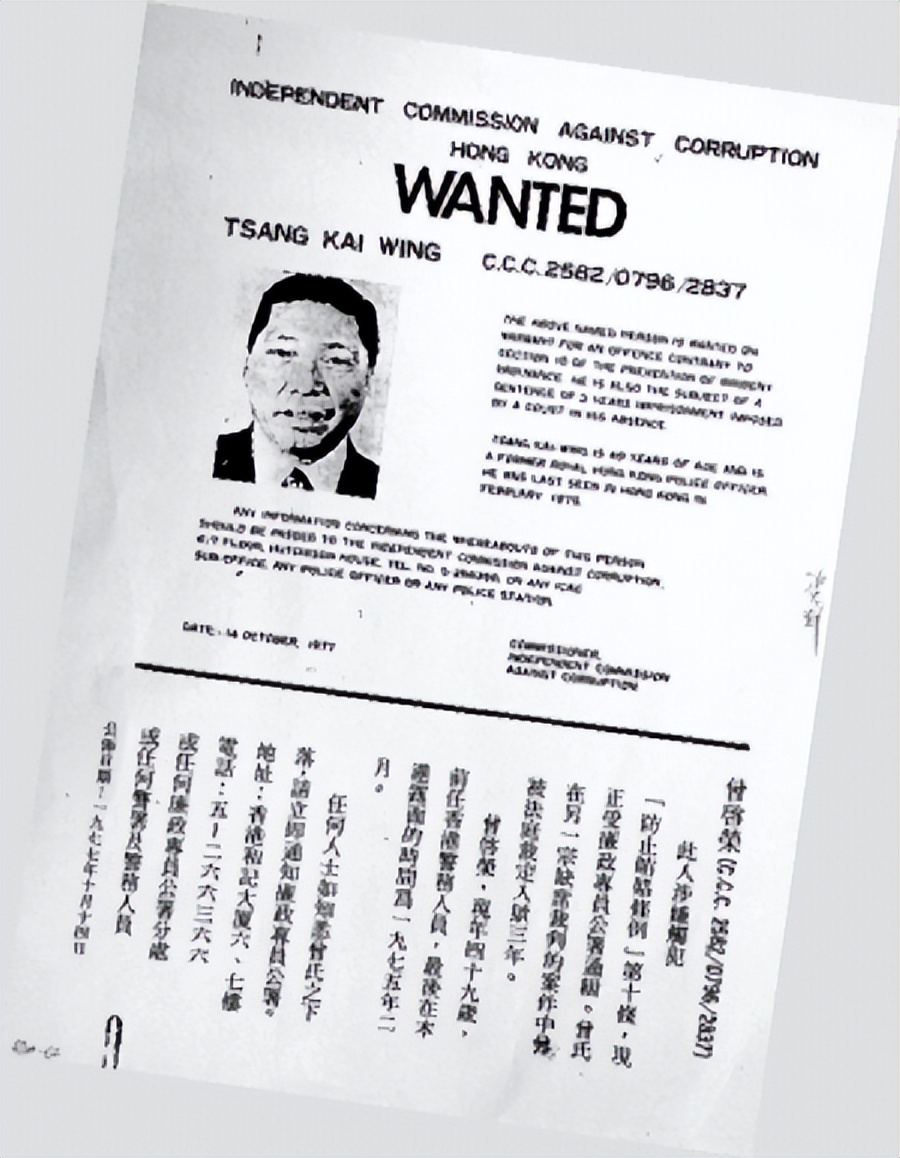 INDEPENDENT COMMISSION AGAINST CORRUPTION
HONG KONG
WANTED
TSANG KAI WING C.C.C. 2582/0796/2837
THE ABOVE NAMED PERSON IS WANTED ON
WARRANT FOR AN OFFENCE CONTRARY TO
SECTION 10 OF THE PREVENTION OF BRIBERY
ORDINANCE. HE IS ALSO THE SUBJECT OF A
SENTENCE OF 3 YEARS IMPRISONMENT IMPOSED
BY A COURT IN HIS ABSENCE.
TSANG KAI WING IS 49 YEARS OF AGE AND IS
A FORMER ROYAL HONG KONG POLICE OFFICER
HE WAS LAST SEEN IN HONG KONG IN
FEBRUARY 1975.
ANY INFORMATION CONCERNING THE WHEREABOUTS OF THIS PERSON
SHOULD BE PASSED TO THE INDEPENDENT COMMISSION AGAINST CORRUPTION,
6/7 FLOOR, HUTCHISON HOUSE, TEL. NO. OR ANY ICAC
SUB-OFFICE, ANY POLICE OFFICER OR ANY POLICE STATION.
DATE: 14 OCTOBER, 1977
COMMISSIONER,
INDEPENDENT COMMISSION
AGAINST CORRUPTION
曾啓榮 (C.C.C. 2582/0796/2837)
此人涉嫌觸犯
「防止賄賂條例」第十條,現
正受廉政專員公署通緝。曾氏
在另一宗缺席裁判的案件中
被法庭裁定入獄三年。
曾啓榮,現年四十九歲,
前任香港警務人員,最後在本
港露面的時間爲一九七五年二
月。
任何人士如知悉曾氏之下
落,請立即通知廉政專員公署。
地址:香港和記大廈六、七樓
電話:五-二六六三六六
或任何廉政專員公署分處
或任何警署及警務人員
公佈日期:一九七七年十月十四日